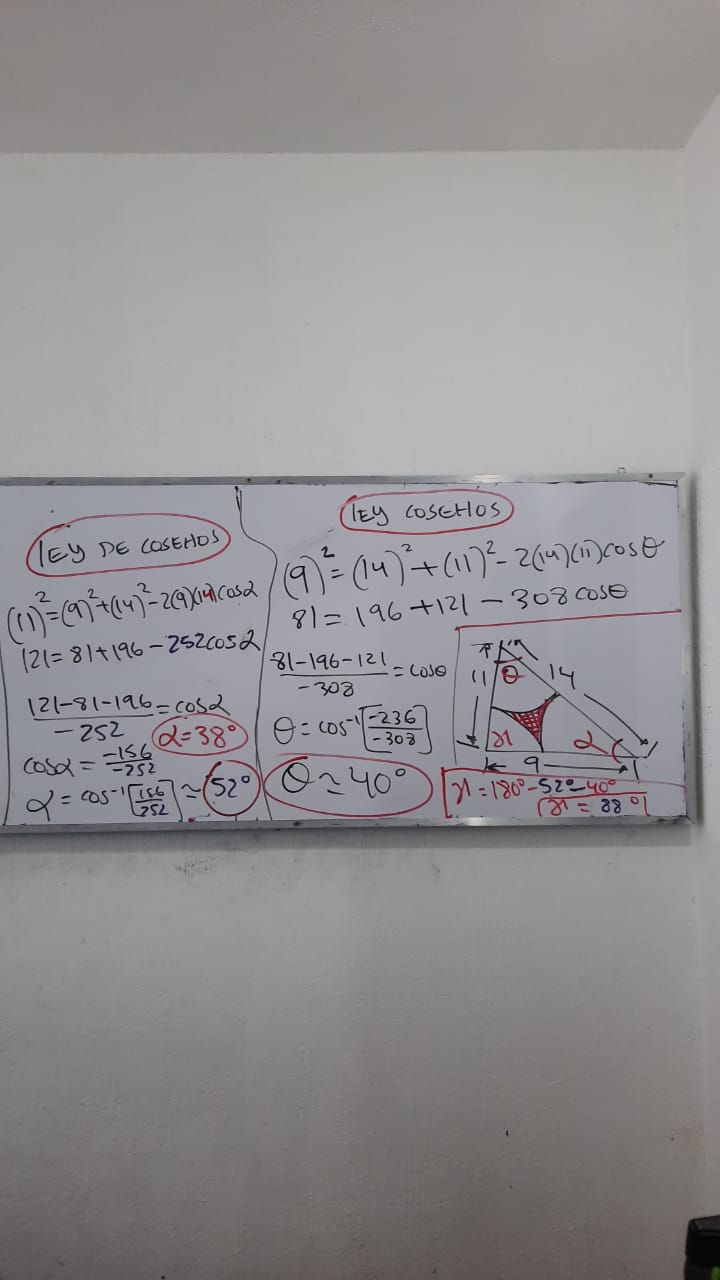 LEY DE COSENOS
(11)²=(9)²+(14)²-2(9)(14)cosα
121=81+196-252cosα
121-81-196/-252=cosα
α=38°
cosα=-156/-252
α=cos⁻¹[156/252]≈52°
LEY COSENOS
(9)²=(14)²+(11)²-2(14)(11)cosθ
81=196+121-308cosθ
81-196-121/-308=cosθ
θ=cos⁻¹[-236/-308]
θ≈40°
θ
11
14
x
α
9
x=180°-52°-40°
x=88°